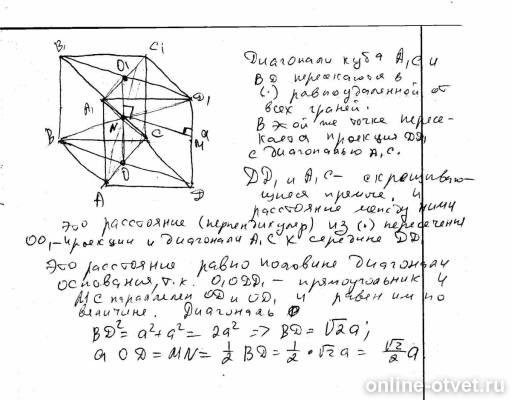 B₁ C₁
O1
A₁ D₁
N a
M
B C
O
A D
Диагонали куба A₁C и
BD пересекаются в
(·) равноудаленной от
всех граней.
В этой же точке пересе-
кается проекция DD₁
с диагональю A₁C.
DD₁ и A₁C - скрещиваю-
щиеся прямые, и
расстояние между ними
это расстояние (перпендикуляр) из (·) пересечения
OO₁-проекции и диагонали A₁C к середине DD₁
Это расстояние равно половине диагонали
основания, т.к. O₁ODD₁ - прямоугольник и
параллелен OD и OD₁ и равен им по
величине. Диагональ
BD² = a² + a² = 2a² => BD = √2a;
a OD = MN = 1/2 BD = 1/2 • √2a = √2/2 a
online-otvet.ru